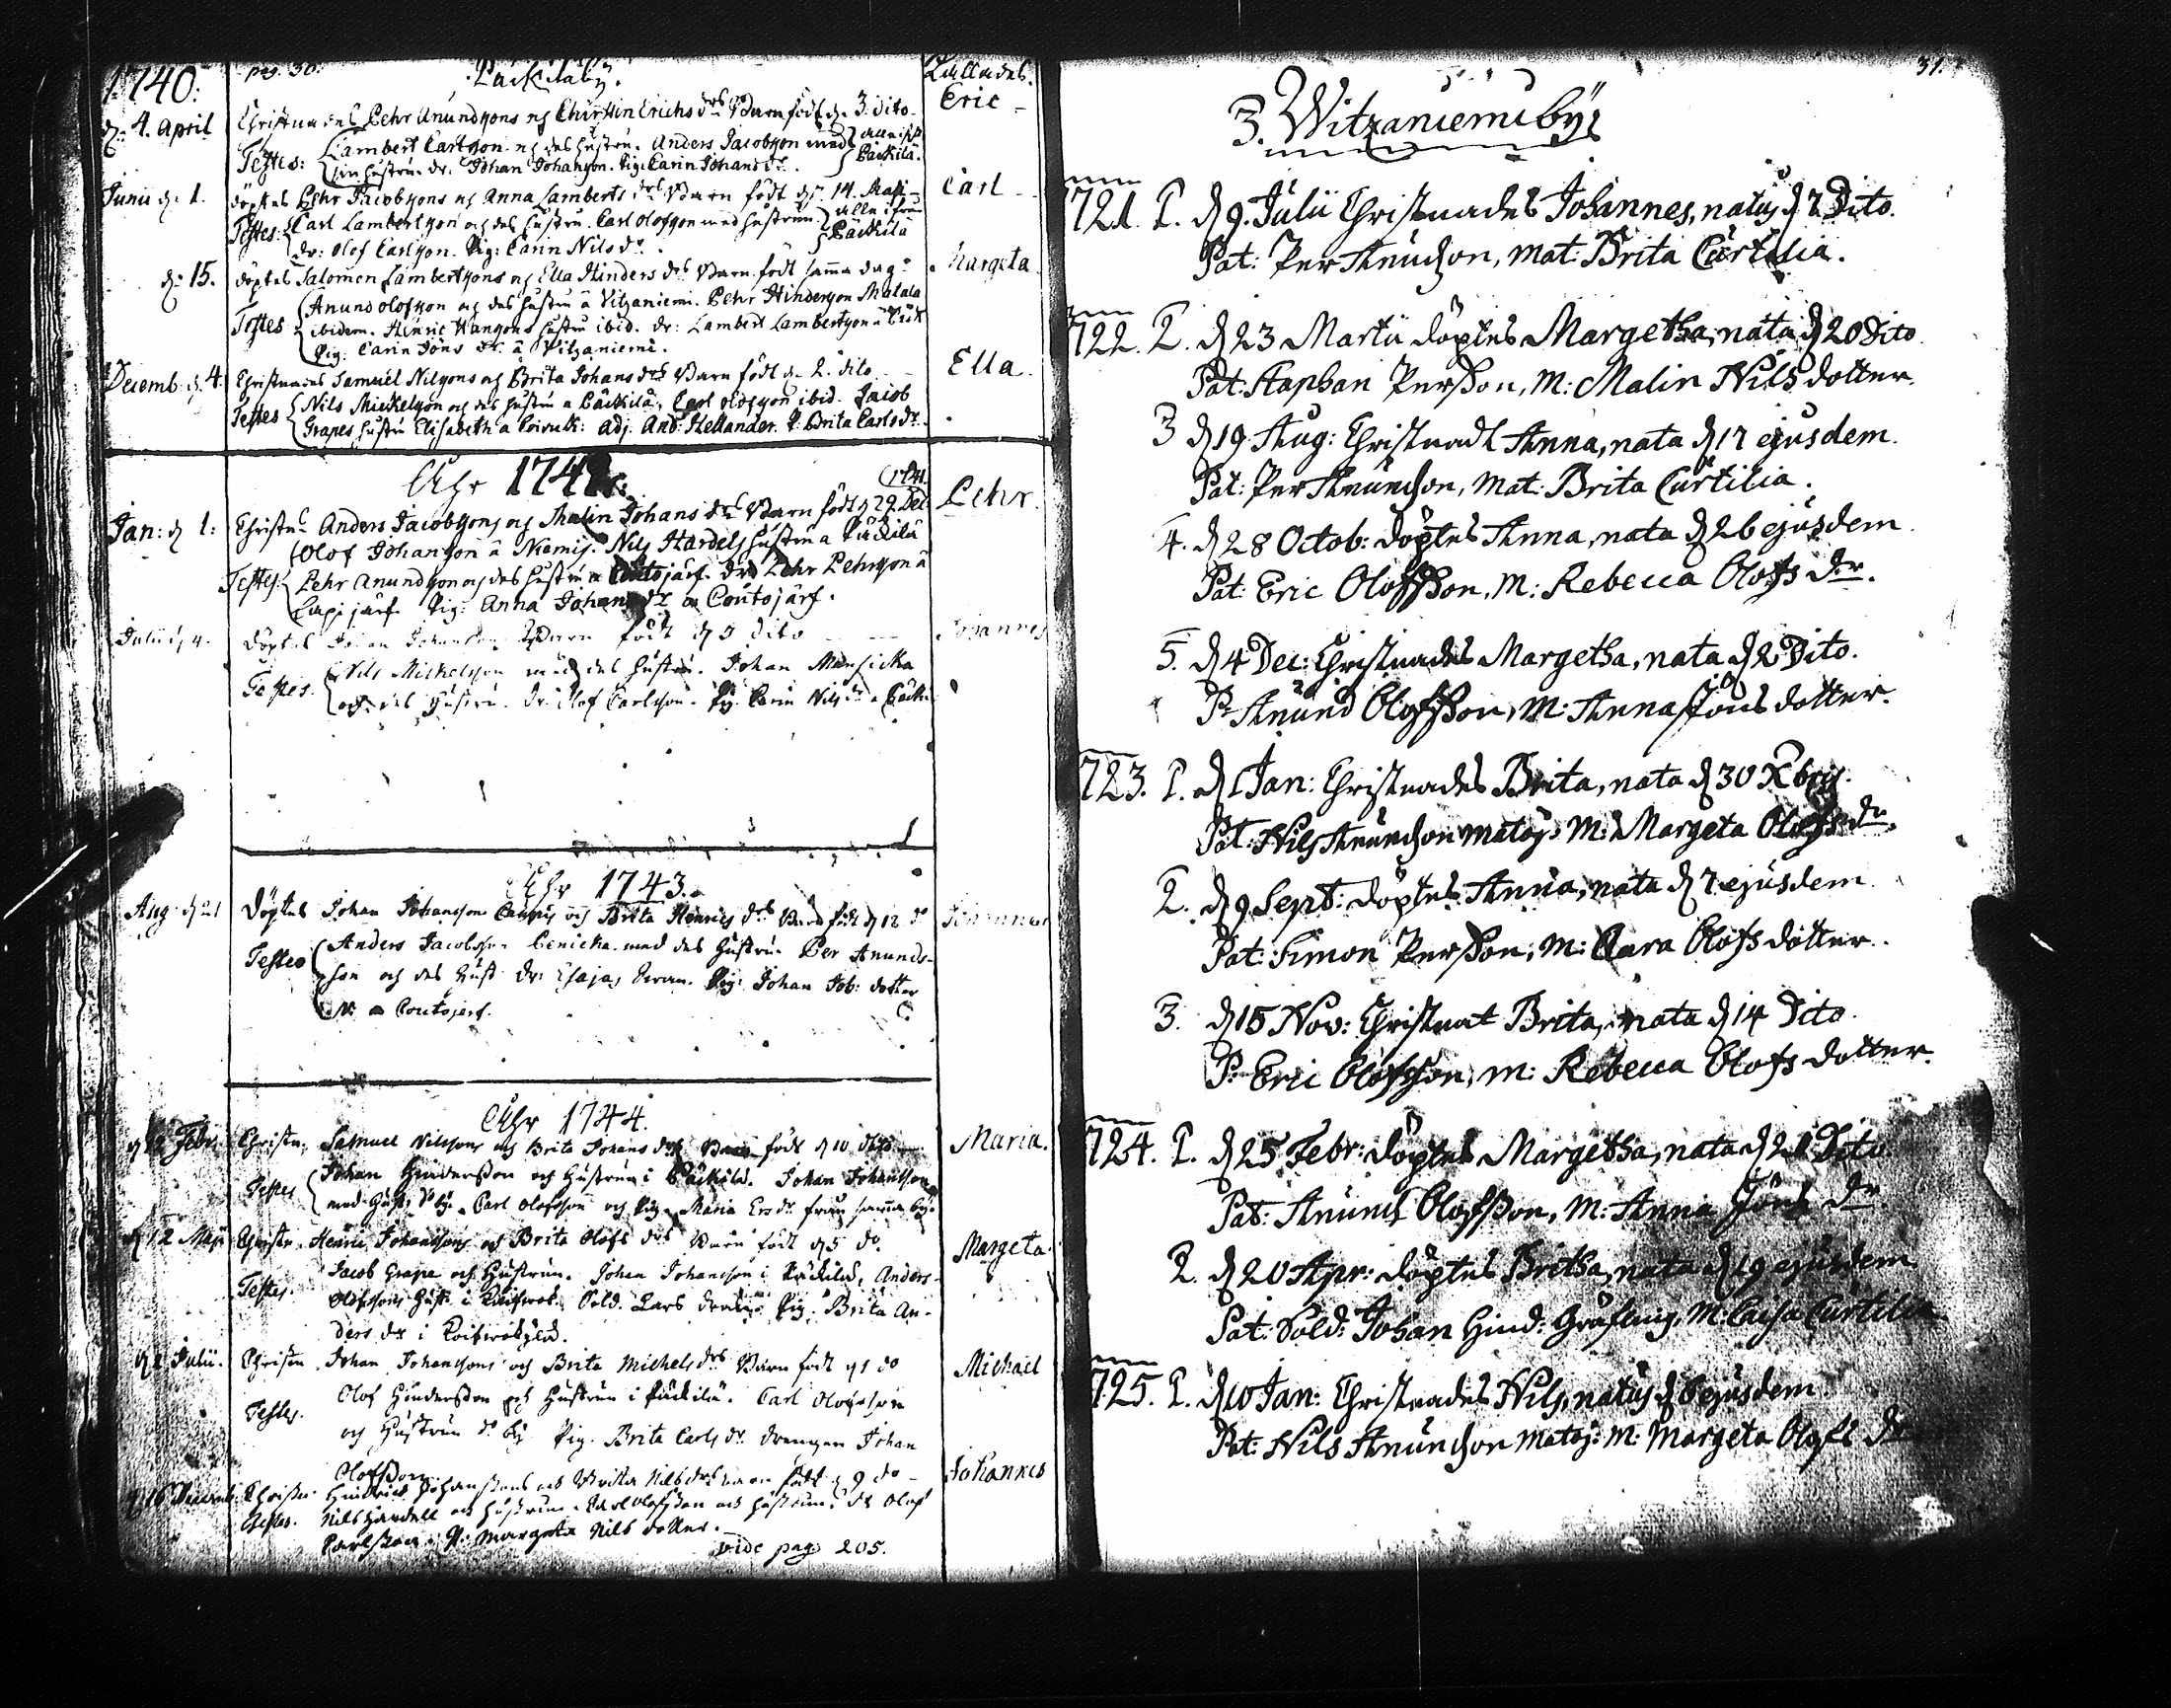 1740. pag. 30. Päckiläby. Kallades.
d. 4. April Christnades Pehr Anundsons och Chirstin Erichs drs Barn födt d. 3. dito Eric
Testes: Lambert Carlson och des hustru. Anders Jacobson med
sin hustru dr: Johan Johanson. Pig: Carin Johans dr. Päckilä.
Junii d. 1. döptes Pehr Jacobsons och Anna Lamberts drs Barn födt d. 14. Maji Carl
Testes: Carl Lambertson och des hustru. Carl Olofson med hustrun alle ifrån
dr: Olof Carlson. Pig: Carin Nils dr. Päckilä
d. 15. döptes Salomon Lambertsons och Ella Hinders drs Barn födt samma dag Margeta
Testes Anund Olofson och des hustru a Vitzaniemi. Pehr Hinderson Matala
ibidem. Hinric Hansons hustru ibid. dr: Lambert Lambertson a
Pig. Carin Jöns dr. a Vitzaniemi.
Decemb: d. 4. Christnades Samuel Nilsons och Brita Johans drs Barn födt d. 2. dito Ella
Testes Nils Mickelson och des hustru a Päckilä, Carl Olofson ibid. Jacob
Grapes hustru Elisabeth a Adj. And: Hellander. P: Brita Carls dr.
Ahr 1742. 1741.
Jan: d 1: Christn. Anders Jacobsons och Malin Johans drs Barn födt d 29. Dec: Pehr
Olof Johanson a Niemis. Nils Hardels hustru a Päckilä
Testes: Pehr Anundson och des hustru a Coutojärf. dr: Pehr Pehrson a
Lapijärf Pig: Anna Johans dr a Coutojärf.
Julii d 4. Döptes Johan Barn födt d 3 dito Johannes
Testes. Nils Mickelson med des hustru. Johan Mansicka
och des hustru. Dr: Olof Carlsson. Pig: Carin Nils dr a
Ahr 1743.
Aug: Döptes Johan Johansson och Brita Henrics drs Barn födt d 12 do Johannes
Testes Anders Jacobsson med des hustru. Per Anunds-
son och des hust. Dr: Esajas Pig: Johan Joh: dotter
a Coutojerf.
Ahr 1744.
Febr: Christn. Samuel Nilssons och Brita Johans drs Barn födt d 10 dito Maria.
Testes Johan Hindersson och Hustrun i Päckilä. Johan Johansson
med hust: do by. Carl Olofsson och Pig. Maria Ers dr från samma by.
d 12 Maji Christn. Henric Johanssons och Brita Olofs drs Barn födt d 5 do Margeta
Testes. Jacob Grape och Hustrun. Johan Johansson i Päckilä, Anders
Olofssons hust: i Sold. Lars Pig. Brita An-
ders dr i
d 2 Julii. Christn Johan Johanssons och Brita Michels drs Barn födt d 1 do Michael
Testes. Olof Hindersson och Hustrun i Päckilä. Carl Olofsson
och Hustrun do by Pig. Brita Carls dr. Drengen Johan
Olofsson.
d 16 Decemb: Christn. Hindrick Johanssons och Brita Nils drs barn födt d 9 do Johannes
Testes. Nils Hardell och hustrun. Carl Olofsson och hustrun. dr Olof
Carlsson. P: Margeta Nils dotter.
vide pag. 205.
31.
3. Witzaniemi by.
1721. 1. d 9. Julii Christnades Johannes, natus d 7 Dito.
Pat: Per Anundson, Mat: Brita Curtilia.
1722. 1. d 23 Martii döptes Margetha, nata d 20 Dito
Pat: Staphan Persson, M: Malin Nils dotter.
3 d 19 Aug: Christnadt Anna, nata d 17 ejusdem.
Pat: Per Anundson, Mat: Brita Curtilia.
4. d 28 Octob: döptes Anna, nata d 26 ejusdem.
Pat: Eric Olofsson, M: Rebecca Olofs dr.
5. d 4 Dec: Christnades Margetha, nata d 2 Dito.
P: Anund Olofsson, M: Anna Jöns dotter.
1723. 1. d 1 Jan: Christnades Brita, nata d 30 Xbris.
Pat: Nils Anundson M: Margeta Olofs dr.
2. d 9 Sept: döptes Anna, nata d 7 ejusdem
Pat: Simon Persson, M: Clara Olofs dotter.
3. d 15 Nov: Christnat Brita, nata d 14 Dito.
P: Eric Olofsson, M: Rebecca Olofs dotter.
1724. 1. d 25 Febr: döptes Margetha, nata d 21 Dito
Pat: Anund Olofsson, M: Anna Jöns dr.
2. d 20 Apr: döptes Britha, nata d 19 ejusdem
Pat: Sold: Johan Hind: M: Caisa Curtilia.
1725. 1. d 10 Jan: Christnades Nils, natus d 6 ejusdem
Pat: Nils Anundson M: Margeta Olofs dr